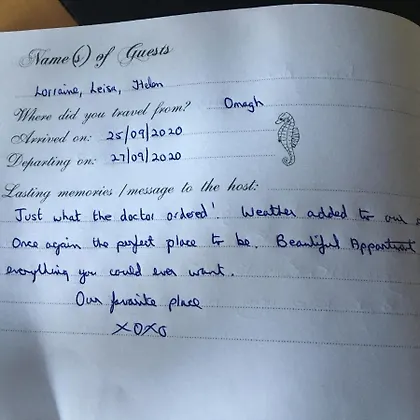 Name(s) of Guests
Lorraine, Leisa, Helen
Where did you travel from? Omagh
Arrived on: 25/09/2020
Departing on: 27/09/2020
Lasting memories / message to the host:
Just what the doctor ordered! Weather added to our
Once again the perfect place to be. Beautiful Appartment
everything you could ever want.
Our favorite place
XOXO